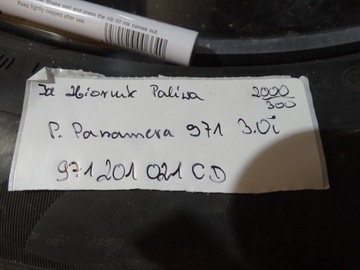 Shake well and press the nib till ink comes out.
Keep tightly capped after use.
Za Zbiornik Paliwa 2000/300
P. Panamera 971 3.0i
971 201 021 CD